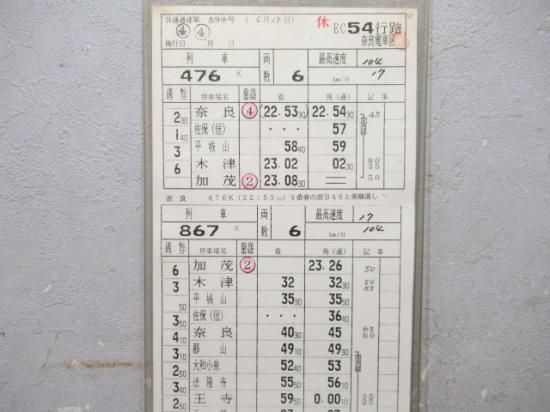 共通運達第594号 (5月12日) 休 EC54行路
④ ④ 奈良電車区
施行日 月 日
列車 両数 6 最高速度 104
476K km/H 17
時分 停車場名 着 発(通) 記事
2 30 奈良 ④ (22.53 30) 22.54 30 45
1 40 佐保(信) ・・・ 57
3 平城山 58 40 59
6 木津 23.02 02 30 80
加茂 ② 23.08 30 == 50
奈良 476K(22:53 30) 4番着の奈846と乗継通し
列車 両数 6 最高速度 17
867K km/H 104
時分 停車場名 着 発(通) 記事
6 加茂 ② 23.26 50
3 木津 32 32 30 50
50 平城山 35 30 35 50
3 50 佐保(信) ・・・ 36 40
4 10 奈良 40 30 45 65 60
3 10 郡山 49 10 49 30
2 30 大和小泉 52 40 53
3 40 法隆寺 55 50 56 10
王寺 59 50 0.00 10